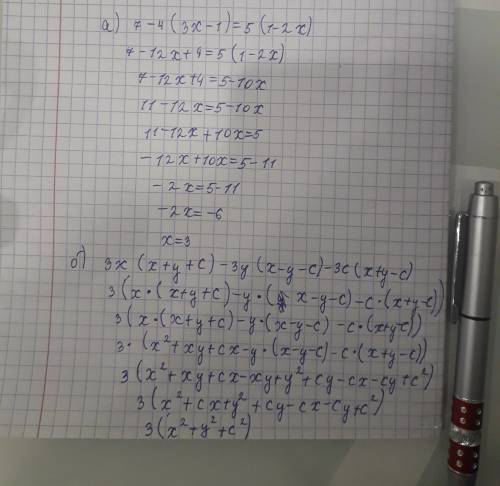 а) 7-4(3x-1)=5(1-2x)
7-12x+4=5(1-2x)
7-12x+4=5-10x
11-12x=5-10x
11-12x+10x=5
-12x+10x=5-11
-2x=5-11
-2x=-6
x=3
б) 3x(x+y+c)-3y(x-y-c)-3c(x+y-c)
3(x·(x+y+c)-y·(x-y-c)-c·(x+y-c))
3(x·(x+y+c)-y·(x-y-c)-c·(x+y-c))
3·(x²+xy+cx-y·(x-y-c)-c·(x+y-c))
3(x²+xy+cx-xy+y²+cy-cx-cy+c²)
3(x²+cx+y²+cy-cx-cy+c²)
3(x²+y²+c²)